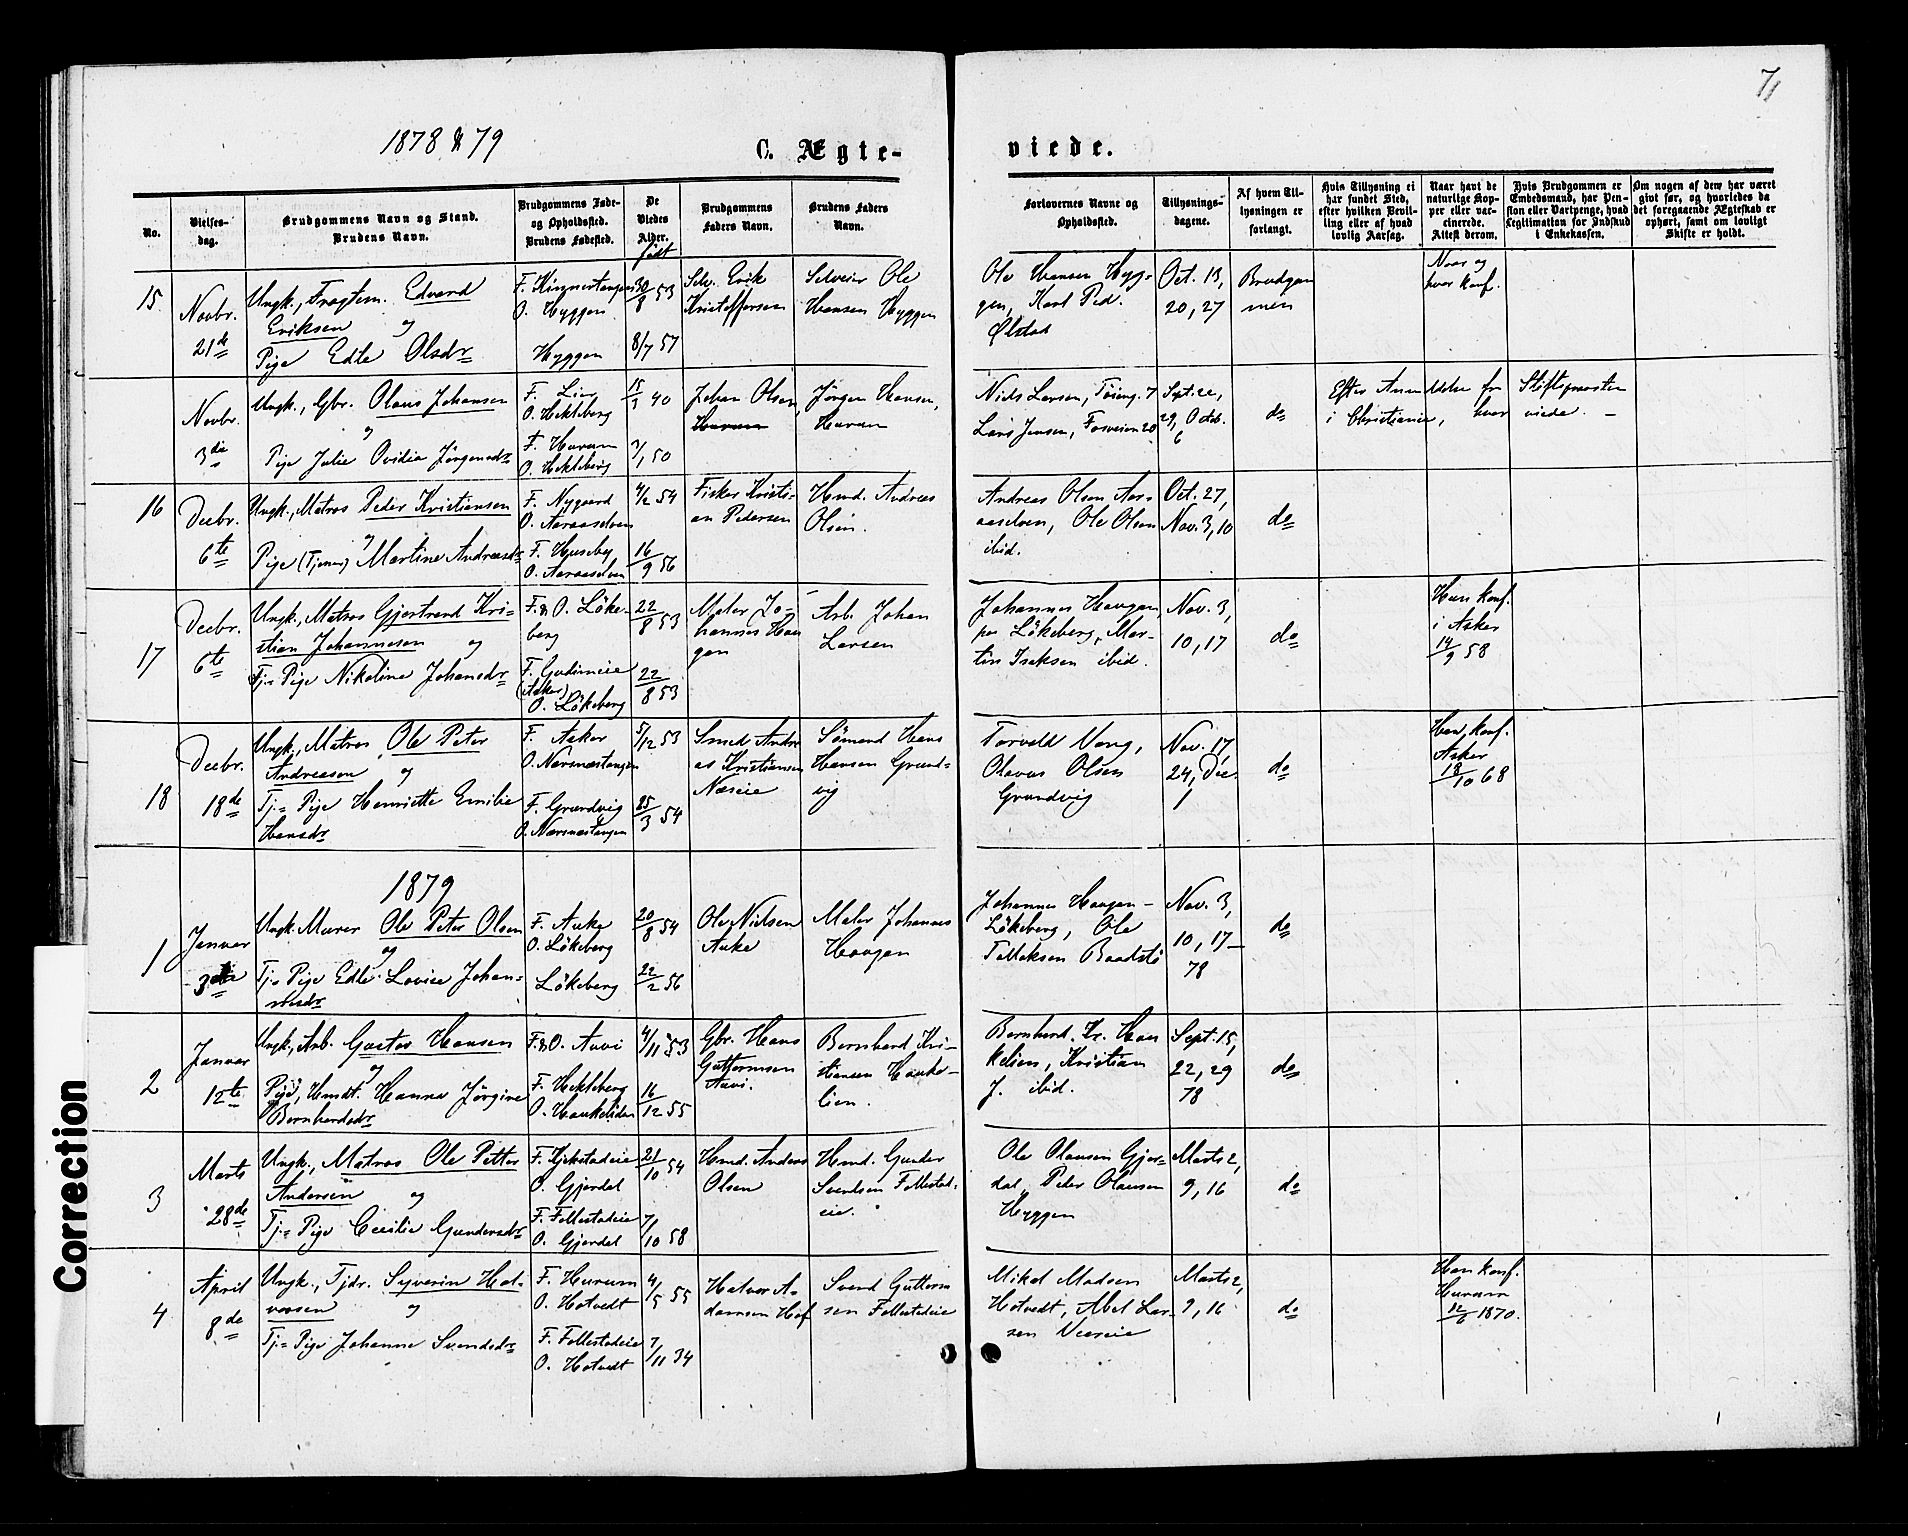 7/1
1878 & 79
C. Ægte-
viede.
No.
Vielses-
dag.
Brudgommens Navn og Stand.
Brudens Navn.
Brudgommens Føde-
og Opholdssted.
Brudens Fødested.
De
Viedes
Alder.
født
Brudgommens
Faders Navn.
Brudens Faders
Navn.
Forlovernes Navne og
Opholdssted.
Tillysnings-
dagene.
Af hvem Til-
lysningen er
forlangt.
Hvis Tillysning ei
har fundet Sted,
efter hvilken Bevil-
ling eller af hvad
lovlig Aarsag.
Naar havt de
naturlige Kop-
per eller vac-
cinerede.
Attest derom.
Hvis Brudgommen er
Embedsmand, har Pen-
sion eller Vartpenge, hvad
Legitimation for Indskud
i Enkekassen.
Om nogen af dem har været
gift før, og hvorledes da
det foregaaende Ægteskab er
ophørt, samt om lovligt
Skifte er holdt.
15
Novbr.
21de
Ungk., Fragtem. Edvard
Eriksen og
Pige Edle Olsdr
F.
O. Hyggen
Hyggen
30/8 53
8/7 57
Selv. Erik
Kristoffersen
Selveier Ole
Hansen Hyggen
Ole Hansen Hyg-
gen, Karl Ped.
Ølstad
Oct. 13,
20, 27
Brudgom
men
Naar og
hvor konf.
Novbr.
3die
Ungk., Gbr. Olaus Johansen
og
Pige Julie Ovidia Jørgensdr
F. Lien
O. Hekleberg
F. Hurum
O. Hekleberg
15/3 40
7/1 50
Johan Olsen,
Hurum
Jørgen Hansen,
Hurum
Niels Larsen, Tøieng. 7
Lars Jensen, Fosveien 20
Sept. 22,
29, Octob.
6
do
Efter Anmeldelse fra Stiftsprovsten
i Christiania, hvor viede. -
16
Decbr.
6te
Ungk., Matros Peder Kristiansen
og
Pige (Tjener) Martine Andreasdr
F. Nygaard
O. Aaraaselven
F. Huseby
O. Aaraaselven
4/2 54
16/9 56
Fisker Kristi-
an Pedersen
Hmd. Andreas
Olsen.
Andreas Olsen Aar-
aaselven, Ole Olsen
ibid.
Oct. 27,
Nov. 3, 10
do
17
Decbr.
6te
Ungk., Matros Gjertrand Kri-
stian Johannesen og
Tj.= Pige Nikoline Johansdr
F. & O. Løke-
berg
F. Gudimeie
(Asker)
O. Løkeberg
22/8 53
22/8 53
Maler Jo-
hannes Hau
gen
Arb. Johan
Larsen
Johannes Haugen
paa Løkeberg, Mar-
tin Isaksen ibid.
Nov. 3,
10, 17
do
Hun konf.
i Asker
14/9 58
18
Decbr.
18de
Ungk., Matros Ole Peter
Andreasen og
Tj.= Pige Henriette Emilie
Hansdr
F. Asker
O. Nærsnæstangen
F. Grundvig
O. Nærsnæstangen
5/12 53
25/3 54
Smed Andre
as Kristiansen
Næseie
Sømand Hans
Hansen Grund-
vig
Torvald Vang,
Olavus Olsen
Grundvig
Nov. 17,
24, Dec.
1
do
Han konf.
Asker
18/10 68
1879
1
Januar
3die
Ungk. Murer Ole Peter Olsen
og
Tj.= Pige Edle Lovise Johan-
nesdr
F. Auke
O. Løkeberg
Løkeberg
20/8 54
22/2 56
Ole Nielsen
Auke
Maler Johannes
Haugen
Johannes Haugen -
Løkeberg, Ole
Tollaksen Baadstø
Nov. 3,
10, 17 -
78
do
2
Januar
12te
Ungk., Arb. Gustav Hansen
og
Pige, Hmdt. Hanna Jørgine
Bernhardsdr
F. & O. Auvi
F. Hekleberg
O. Haukelien
4/11 53
16/12 55
Gbr. Hans
Guttormsen
Auvi.
Bernhard Kri-
stiansen Hauke-
lien.
Bernhard. Kr. Hau
kelien, Kristian
J. ibid.
Sept. 15,
22, 29
78
do
3
Marts
28de
Ungk., Matros Ole Petter
Andersen og
Tj.= Pige Cecilie Gundersdr
F. Kjekstadeie
O. Gjerdal
F. Follestadeie
O. Gjerdal
21/10 54
7/10 58
Hmd. Anders
Olsen
Hmd. Gunder
Svendsen Follestad-
eie.
Ole Olausen Gjer-
dal, Peter Olausen
Hyggen
Marts 2,
9, 16
do
4
April
8de
Ungk., Tjdr. Syverin Hal-
vorsen og
Tj.= Pige Johanne Svendsdr
F. Hurum
O. Hotvedt
F. Follestadeie
O. Hotvedt
4/5 55
7/11 34
Halvor A-
damsen Hof
Svend Guttorm
sen Follestadeie
Mikel Madsen
Hotvedt, Abel Lar-
sen Veereie
Marts 2,
9, 16
do
Han konf.
Hurum
12/6 1870.
Correction